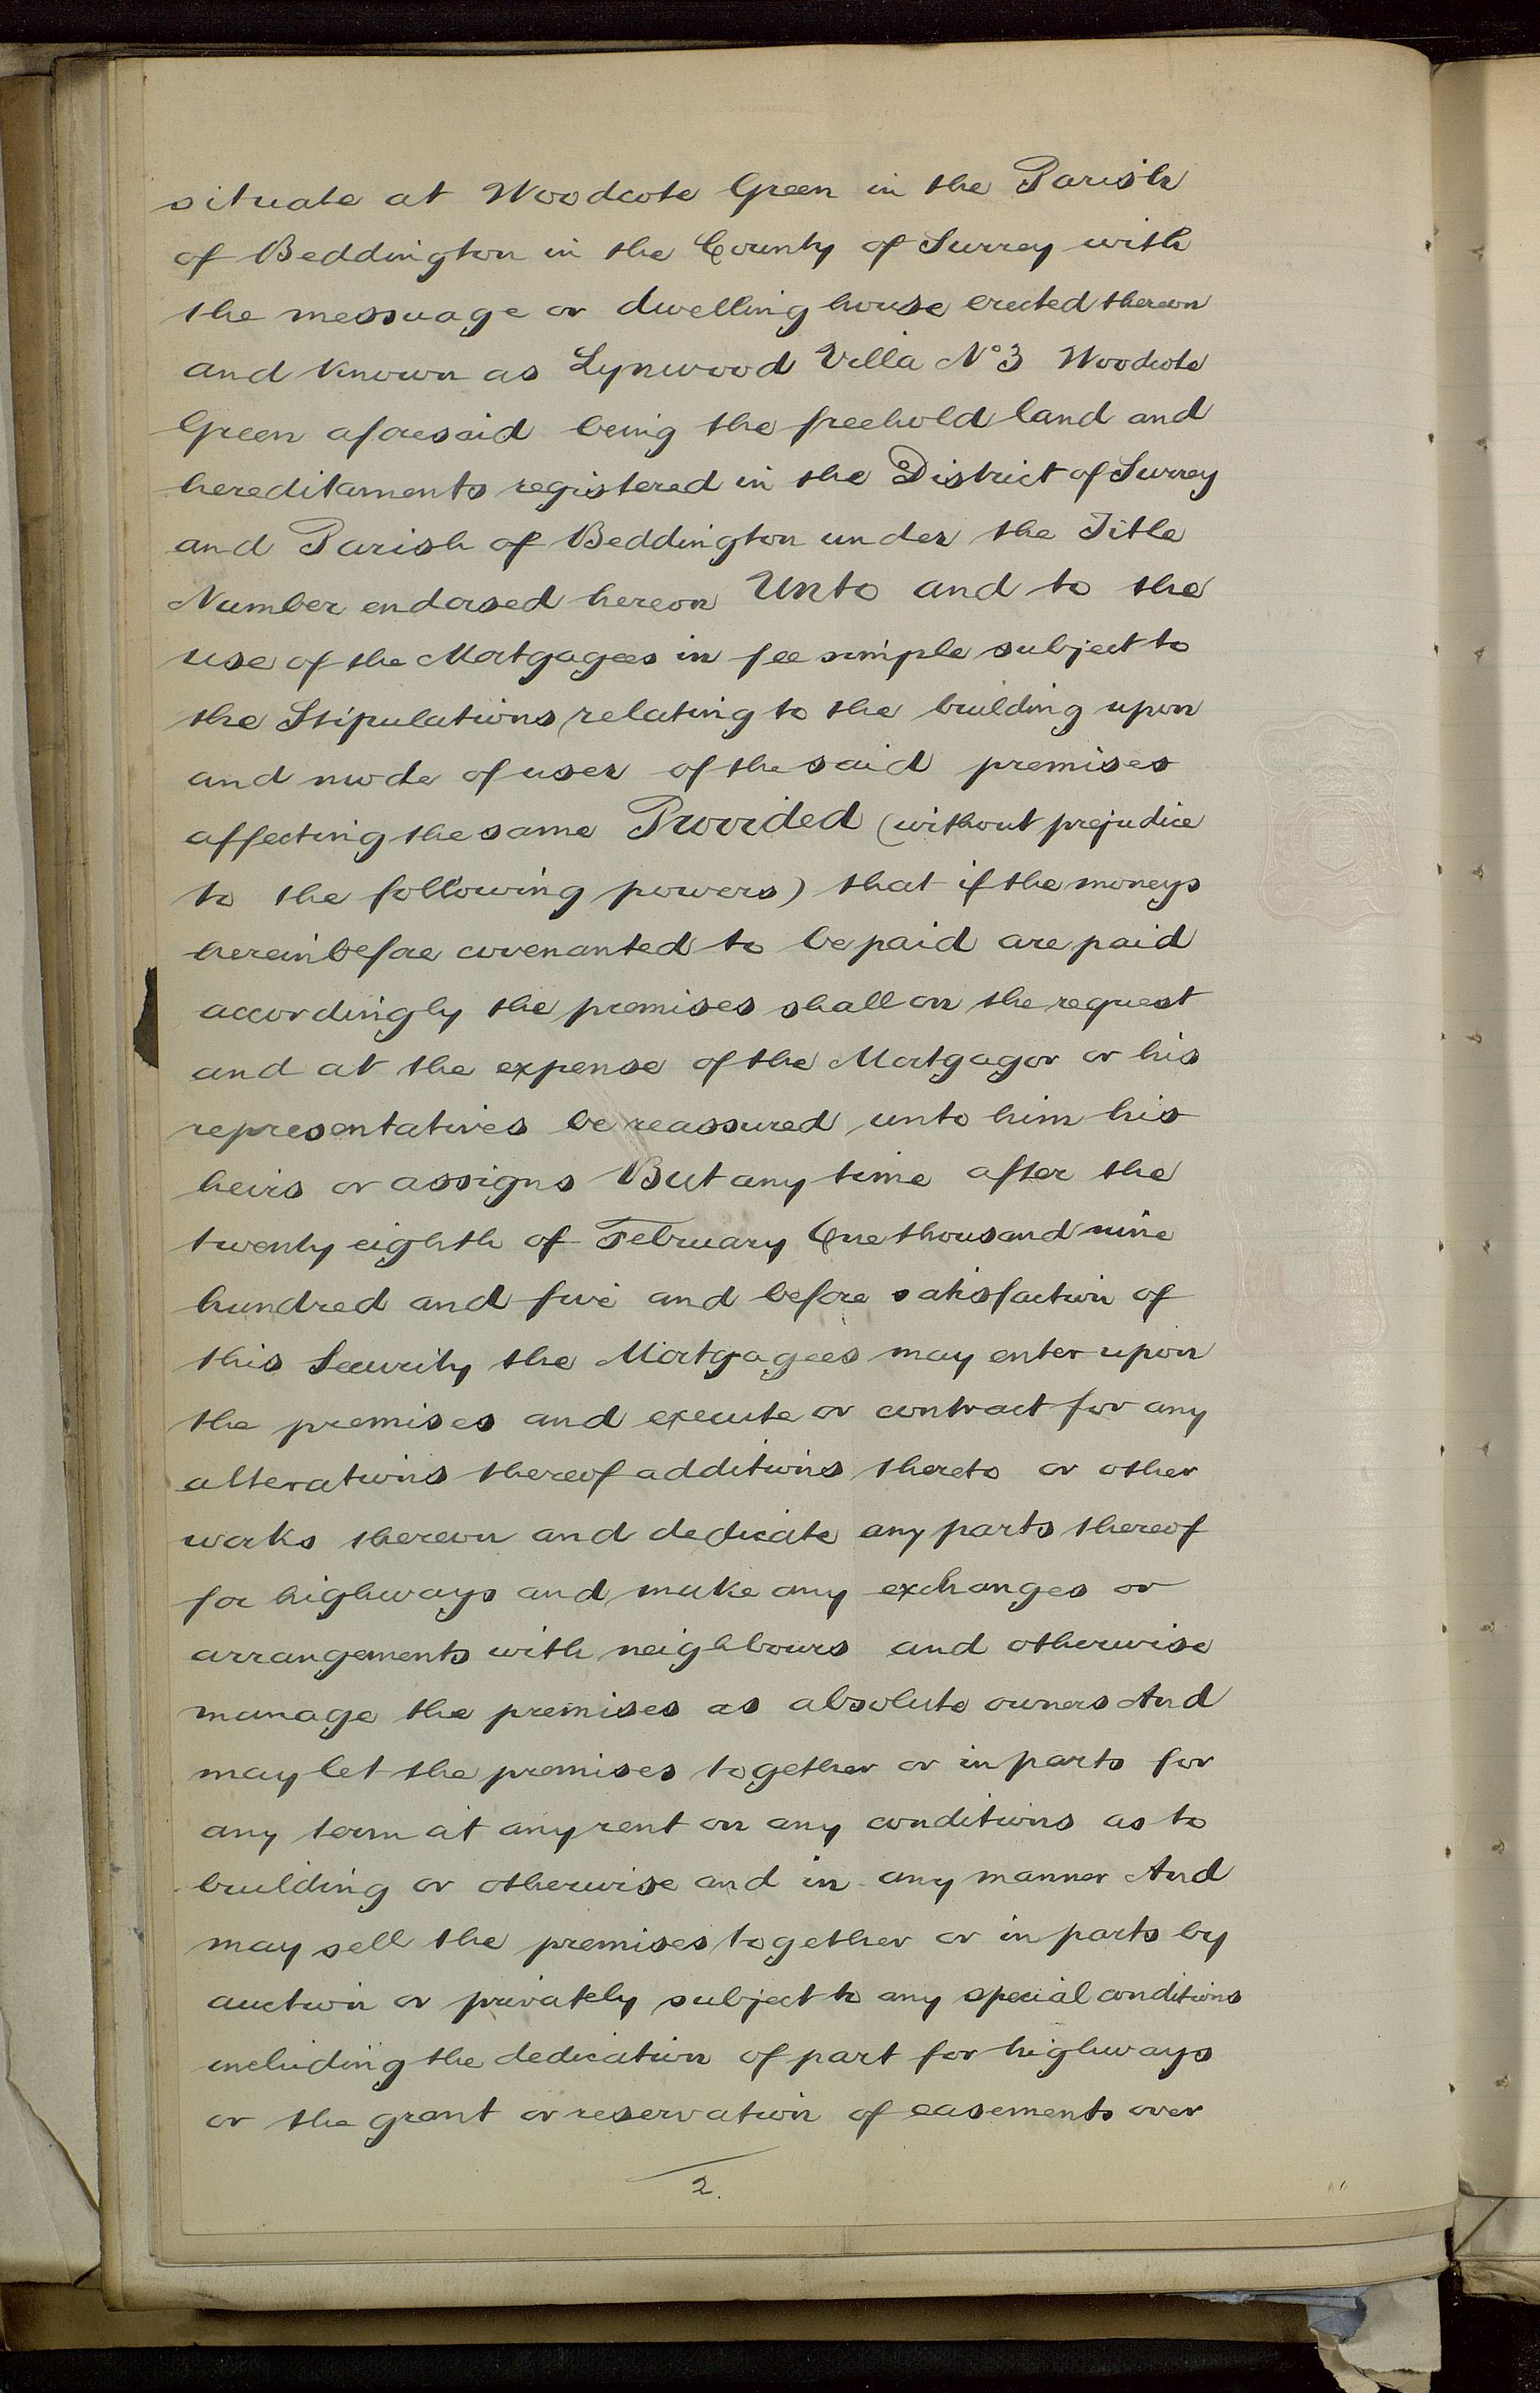 situate at Woodcote Green in the Parish
of Beddington in the County of Surrey with
the messuage or dwelling house erected thereon
and known as Lynwood Villa No 3 Woodcote
Green aforesaid being the freehold land and
hereditaments registered in the District of Surrey
and Parish of Beddington under the Title
Number endorsed hereon Unto and to the
use of the Mortgagees in fee simple subject to
the Stipulations relating to the building upon
and mode of user of the said premises
affecting the same Provided (without prejudice
to the following powers) that if the moneys
hereinbefore covenanted to be paid are paid
accordingly the premises shall on the request
and at the expense of the Mortgagor or his
representatives be reassured unto him his
heirs or assigns But any time after the
twenty eighth of February One thousand nine
hundred and five and before satisfaction of
this Security the Mortgagees may enter upon
the premises and execute or contract for any
alterations thereof additions thereto or other
works thereon and dedicate any parts thereof
for highways and make any exchanges or
arrangements with neighbours and otherwise
manage the premises as absolute owners And
may let the premises together or in parts for
any term at any rent on any conditions as to
building or otherwise and in any manner And
may sell the premises together or in parts by
auction or privately subject to any special conditions
including the dedication of part for highways
or the grant or reservation of easements over
2.